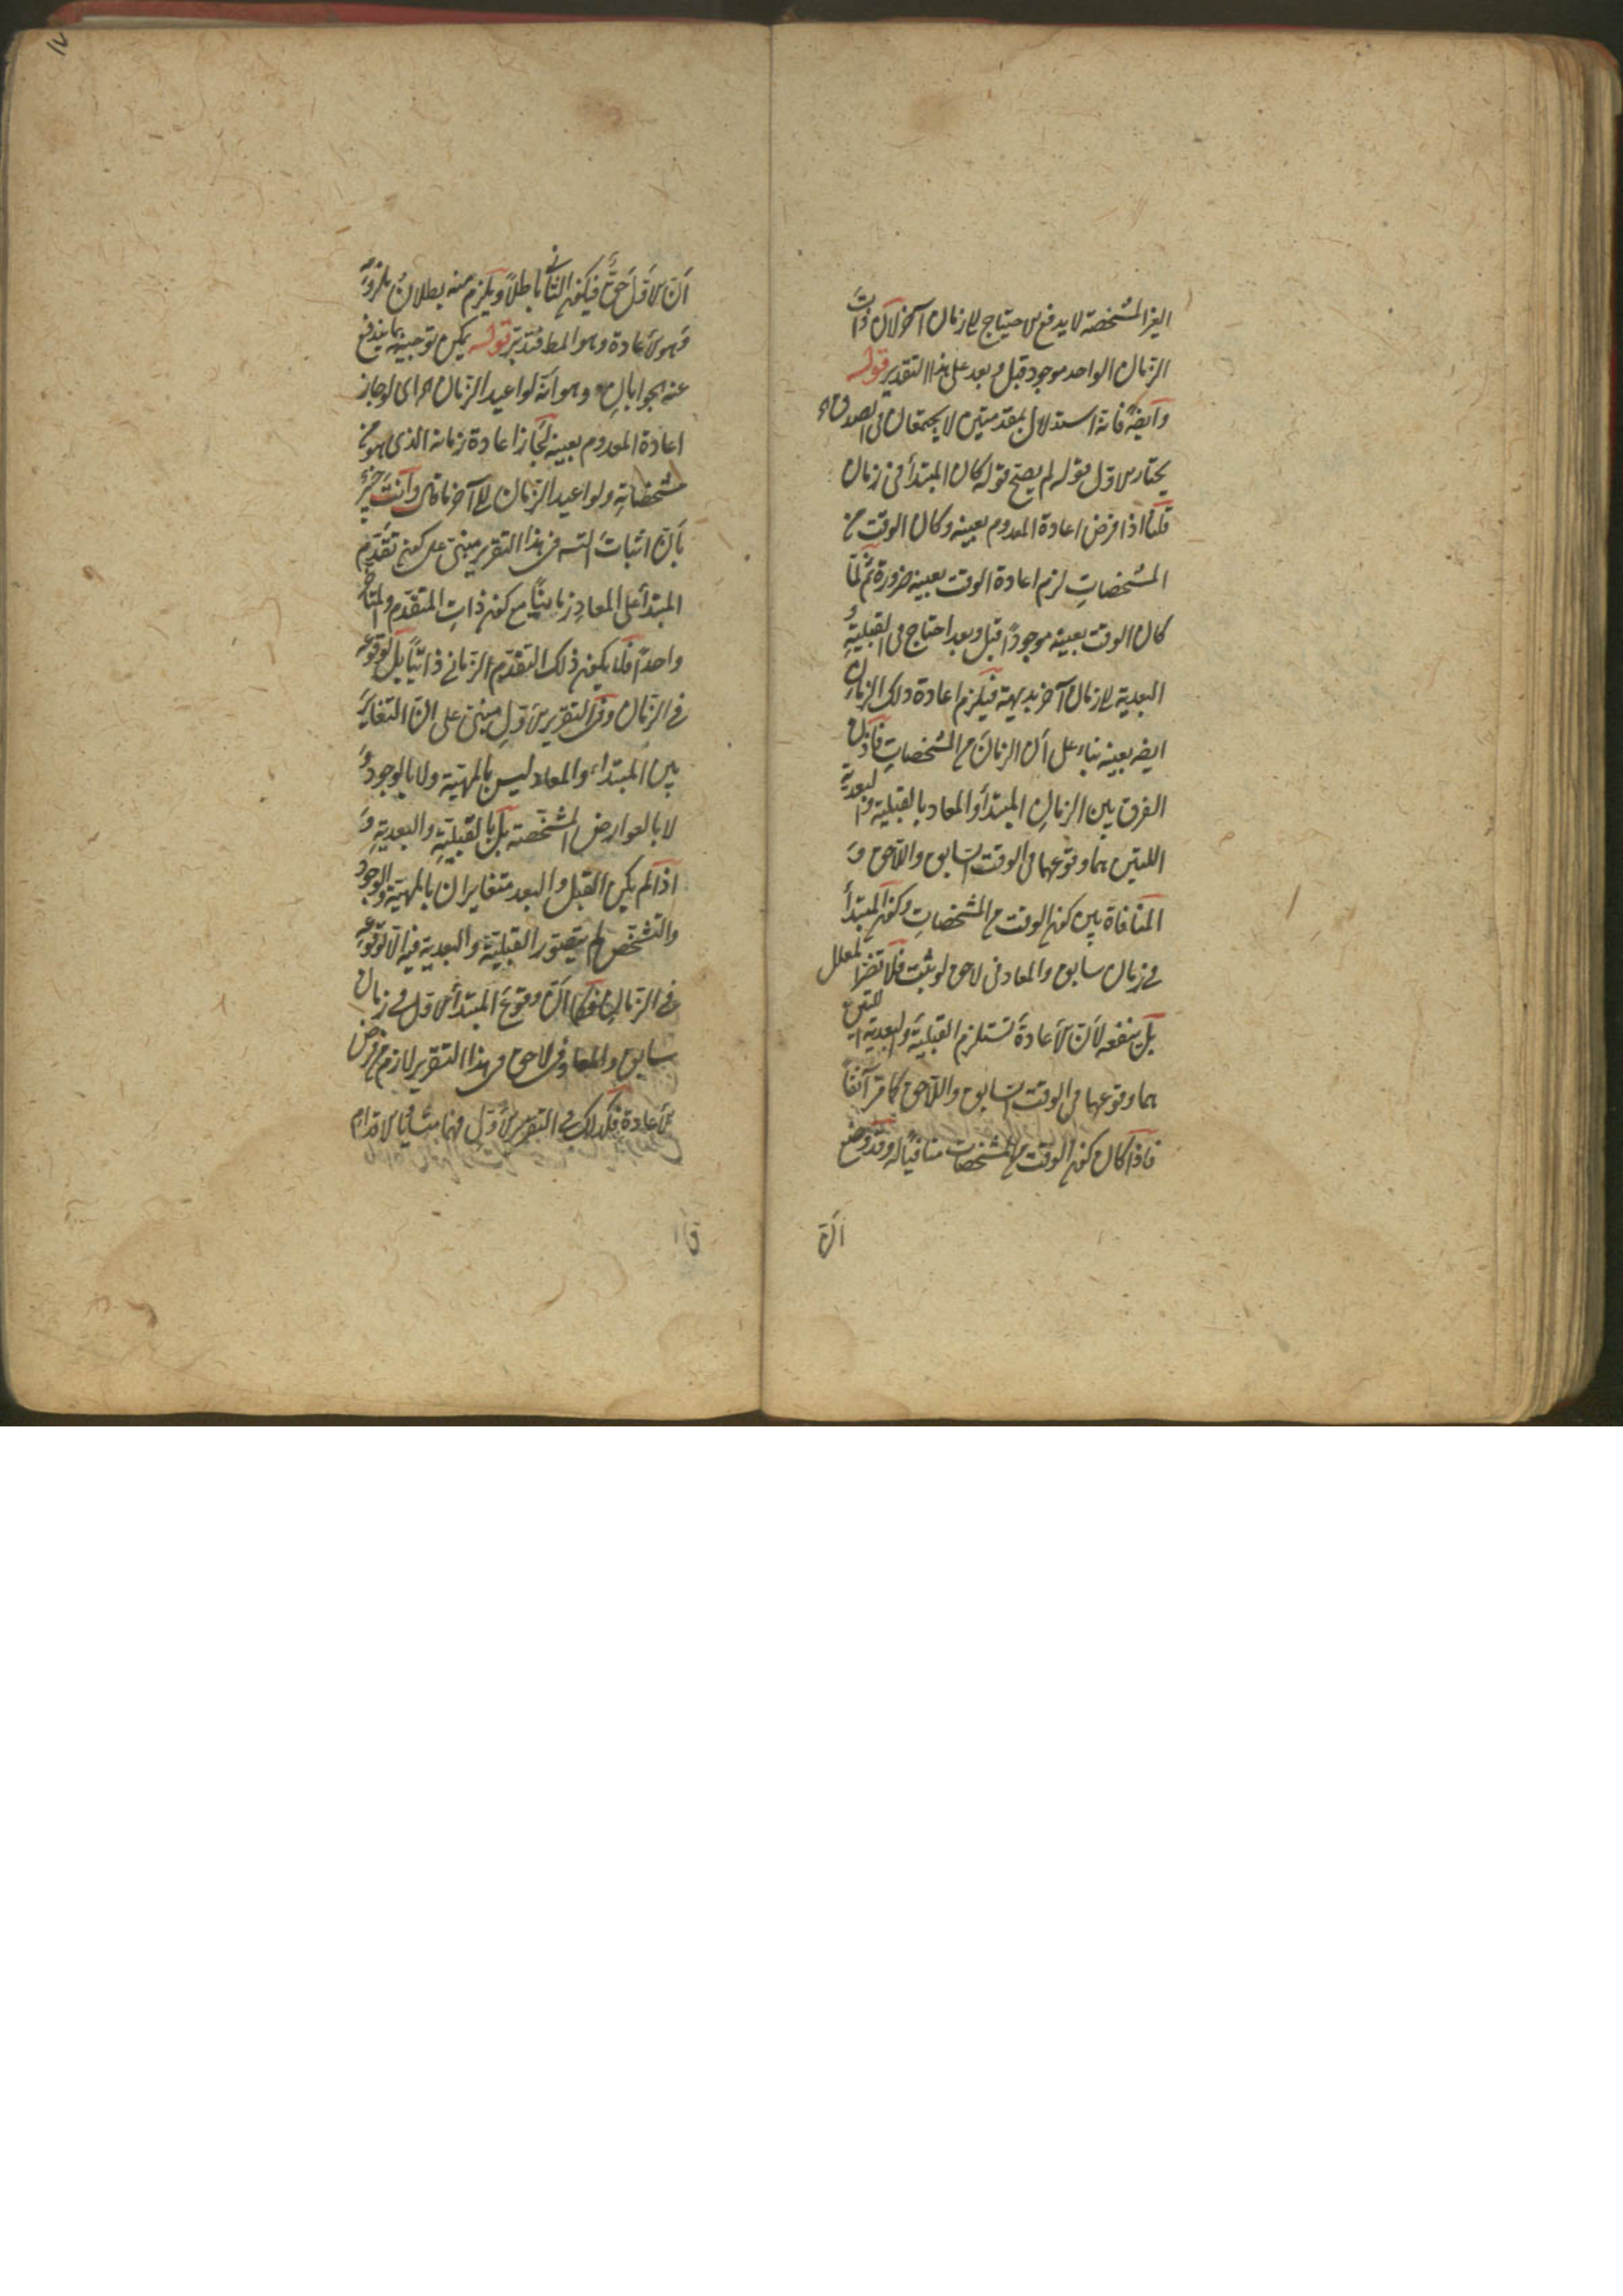 الغير المشخصة لا يدفع الاحتياج الى زمان آخر لان ذات
الزمان الواحد موجود قبل وبعد على هذا التقدير قوله
وايضا فانه استدلال بمقدمتين لا يجتمعان في الصدق
يختار الاول قوله لم يصح قوله كان المبتدأ في زمان
قلنا اذا فرض اعادة المعدوم بعينه وكان الوقت من
المشخصات لزم اعادة الوقت بعينه ضرورة ثم لما
كان الوقت بعينه موجودا قبل وبعد احتاج في القبلية و
البعدية الى زمان آخر بديهة فيلزم اعادة ذلك الزمان
ايضا بعينه بناء على ان الزمان من المشخصات فاذن
الفرق بين الزمان المبتدأ والمعاد بالقبلية والبعدية
اللتين هما وقوعهما في الوقت السابق واللاحق و
المنافاة بين كون الوقت من المشخصات وكون المبتدأ
في زمان سابق والمعاد في لاحق لو ثبت فلا تضر المعلل
بل ينفعه لان الاعادة تستلزم القبلية والبعدية اللتين
هما وقوعهما في الوقت السابق واللاحق كما مر آنفا
فاذا كان كون الوقت من المشخصات منافيا له وقد وضع
ان
ان الاول حق فيكون الثاني باطلا ويلزم منه بطلان ملزومه
وهو الاعادة وهو المط فتدبر قوله يمكن توجيهه بما يندفع
عنه الجوابان وهو انه لو اعيد الزمان اي لو جاز
اعادة المعدوم بعينه لجاز اعادة زمانه الذي هو من
مشخصاته ولو اعيد الزمان الى آخر ما قال وانت خبير
بان اثبات التسلسل في هذا التقرير مبني على كون تقدم
المبتدأ على المعاد زمانيا مع كون ذات المتقدم والمتأخر
واحدا فلا يكون ذلك التقدم الزماني ذاتيا بل لوقوعه
في الزمان وفي التقرير الاول مبني على ان التغاير
بين المبتداء والمعاد ليس بالمهية ولا بالوجود و
لا بالعوارض المشخصة بل بالقبلية والبعدية و
اذا لم يكن القبل والبعد متغايران بالمهية والوجود
والتشخص لم يتصور القبلية والبعدية فيه الا لوقوعه
في الزمان فكما ان وقوع المبتدأ الاول في زمان
سابق والمعاد في لاحق في هذا التقرير لازم من فرض
الاعادة فكذلك في التقرير الاول فهما متساويا الاقدام